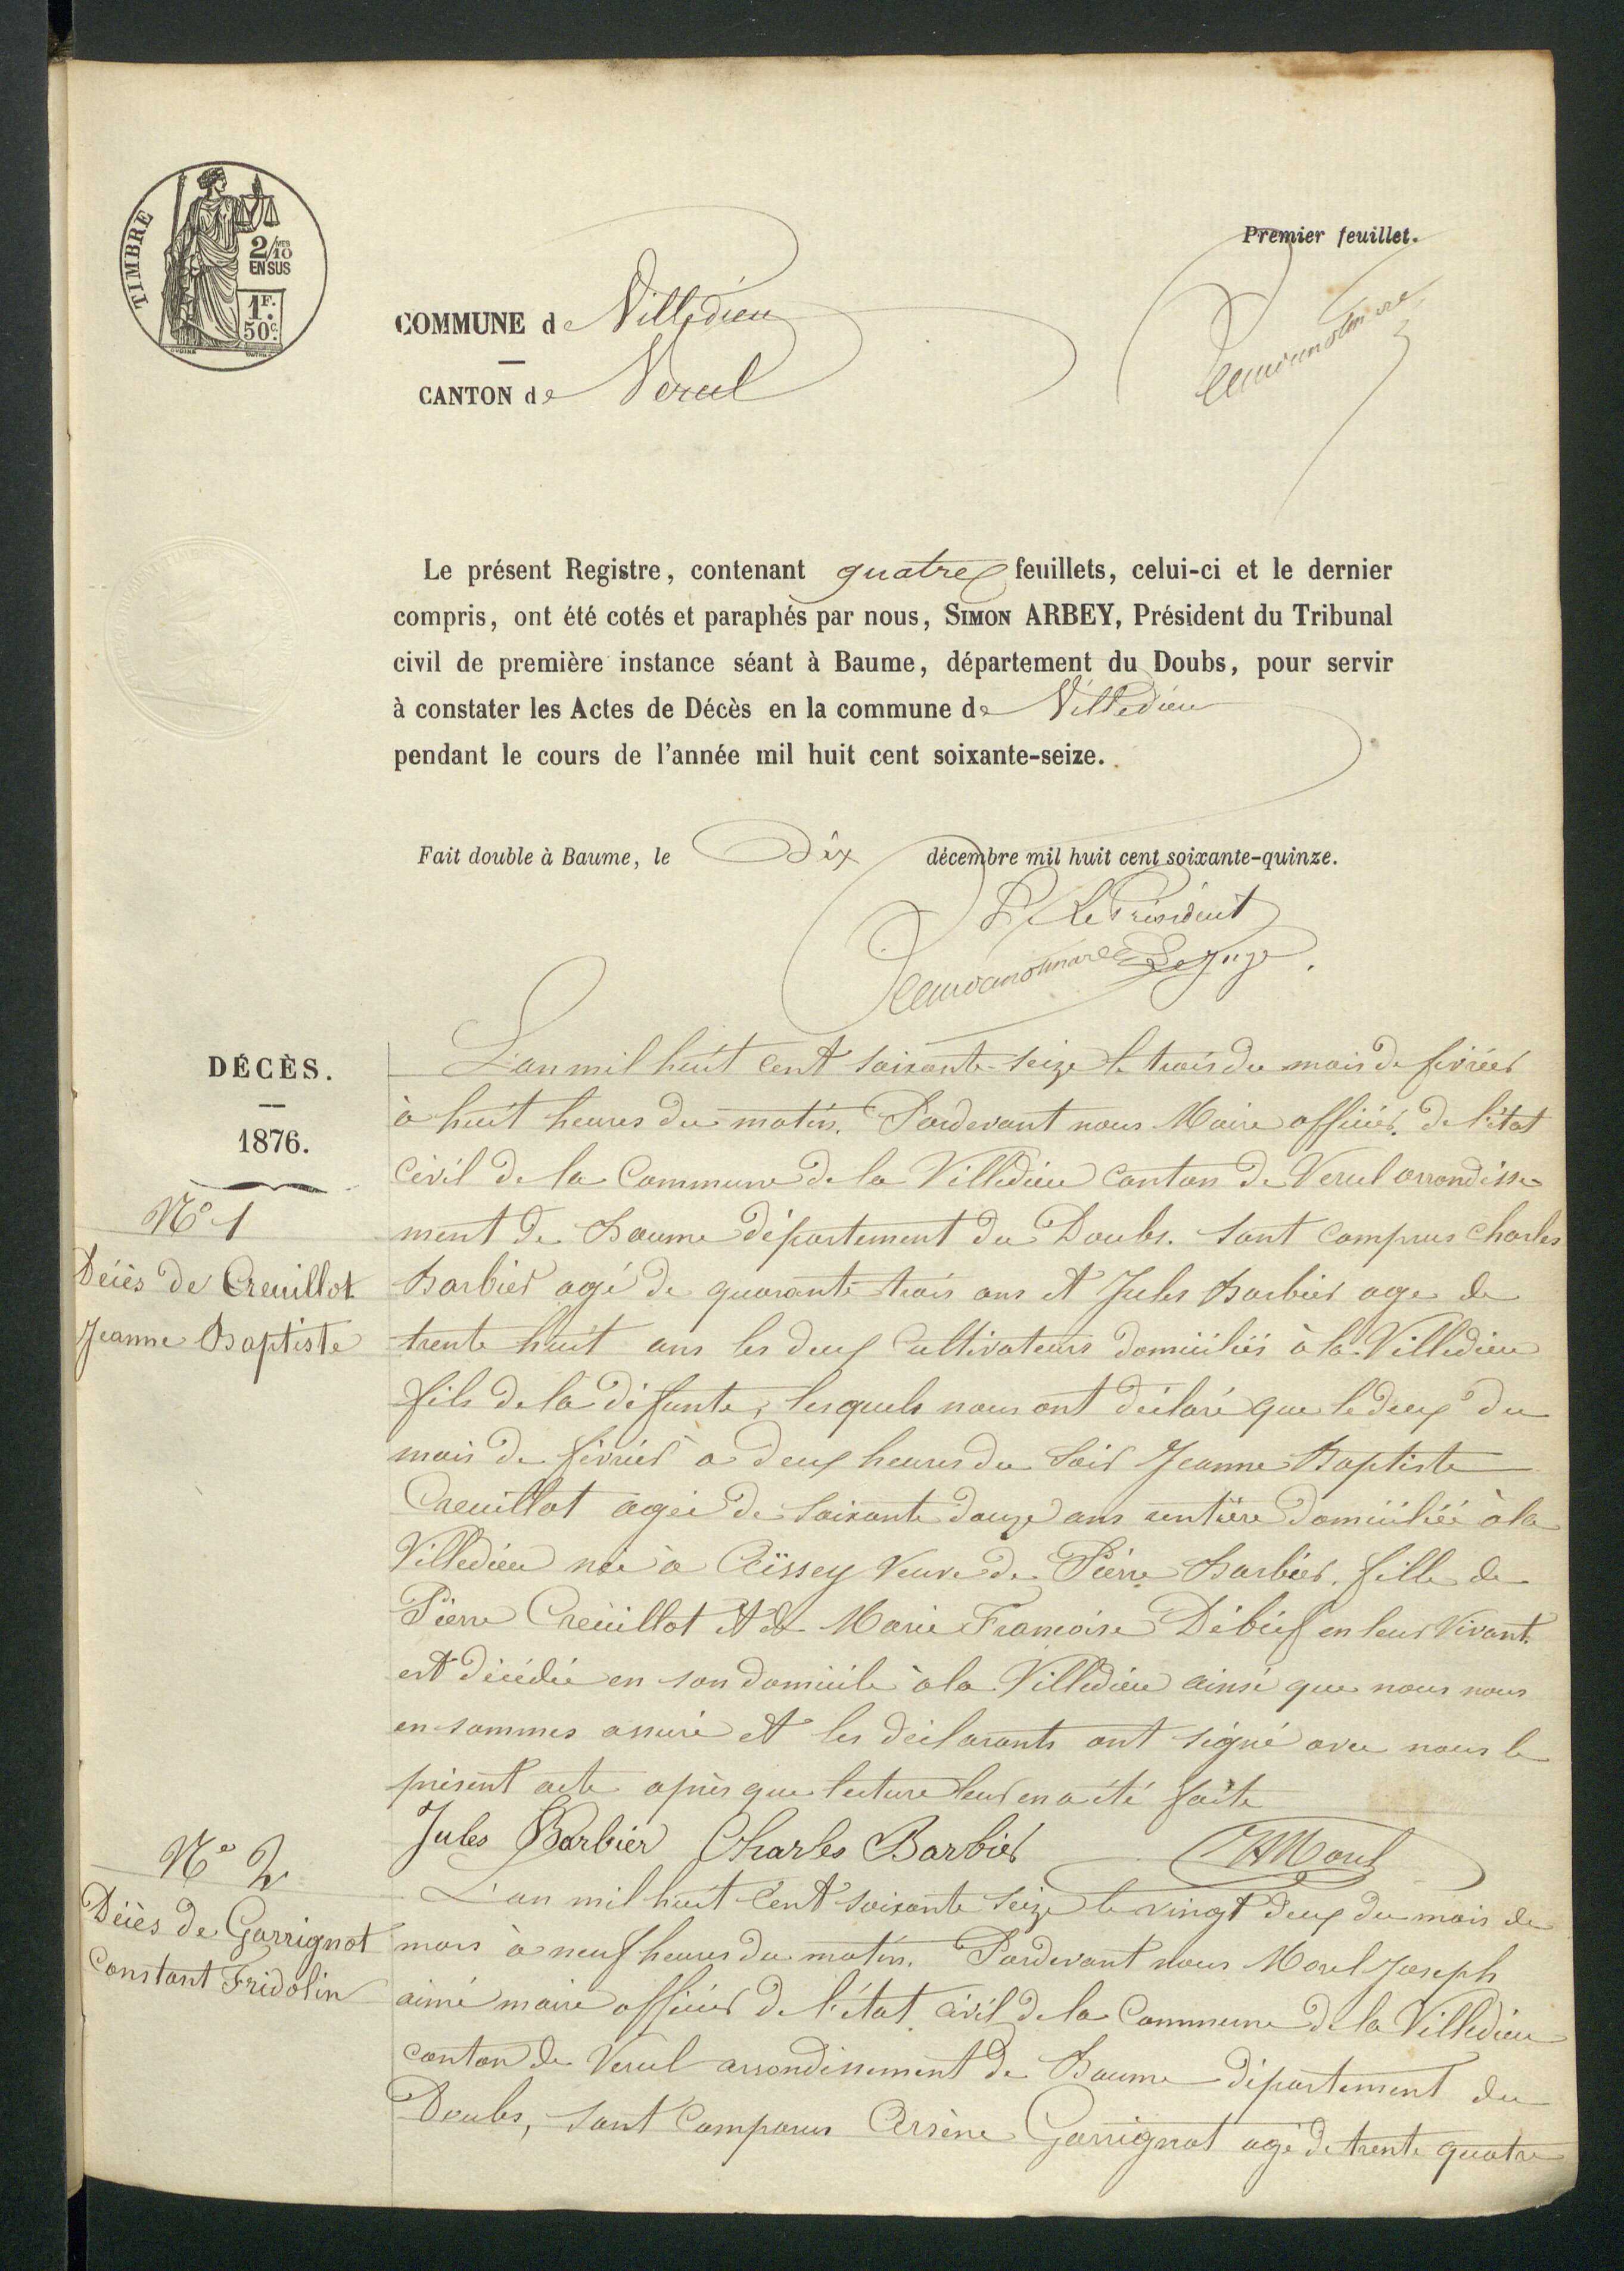 TIMBRE
2/10 EN SUS
1F. 50c.
Premier feuillet.
COMMUNE de Villedieu
CANTON de Vercel
Le présent Registre, contenant quatre feuillets, celui-ci et le dernier
compris, ont été cotés et paraphés par nous, SIMON ARBEY, Président du Tribunal
civil de première instance séant à Baume, département du Doubs, pour servir
à constater les Actes de Décès en la commune de Villedieu
pendant le cours de l'année mil huit cent soixante-seize.
Fait double à Baume, le Dix décembre mil huit cent soixante-quinze.
P. Le Président
Le Juge.
DÉCÈS.
1876.
N° 1
Décès de Creuillot
Jeanne Baptiste
L'an mil huit cent soixante-seize le trois du mois de février
à huit heures du matin. Pardevant nous Maire officier de l'état
civil de la Commune de la Villedieu canton de Vercel arrondisse
ment de Baume département du Doubs. sont comparus Charles
Barbier agé de quarante-trois ans et Jules Barbier age de
trente huit ans les deux cultivateurs domiciliés à la Villedieu
fils de la défunte, lesquels nous ont déclaré que le deux du
mois de février à deux heures du soir Jeanne Baptiste
Creuillot agée de soixante douze ans rentière domiciliée à la
Villedieu née à Aïssey veuve de Pierre Barbier. fille de
Pierre Creüillot et de Marie Francoise Débief en leur vivant
est décédée en son domicile à la Villedieu ainsi que nous nous
en sommes assuré et les déclarants ont signé avec nous le
présent acte après que lecture leur en a été faite
Jules Barbier Charles Barbier JAMorel
N° 2
Décès de Garrignot
Constant Fridolin
L'an mil huit cent soixante seize le vingt deux du mois de
mars à neuf heures du matin. Pardevant nous Morel Joseph
aimé maire officier de l'état civil de la Commune de la Villedieu
canton de Vercel arrondissement de Baume département du
Doubs, sont comparus Arsène Garrignot agé de trente quatre